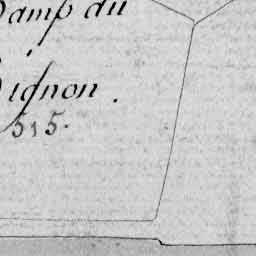 Champ du
Pignon.
515.